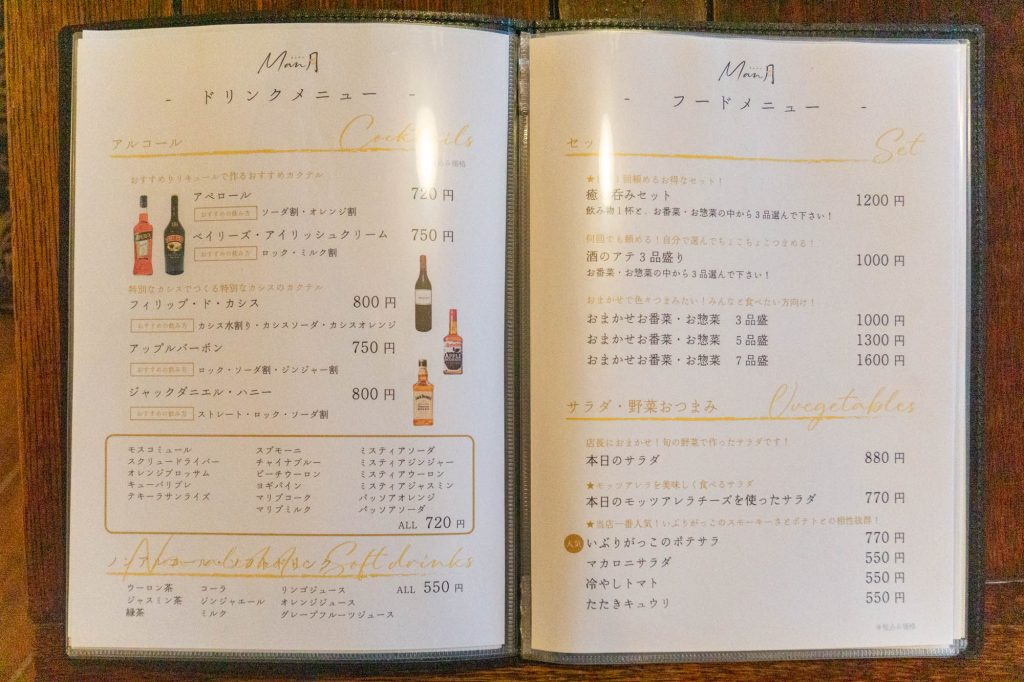 Man月
- ドリンクメニュー -
アルコール Cocktails
おすすめリキュールで作るおすすめカクテル
アペロール 720円
おすすめの飲み方 ソーダ割・オレンジ割
ベイリーズ・アイリッシュクリーム 750円
おすすめの飲み方 ロック・ミルク割
特別なカシスでつくる特別なカシスのカクテル
フィリップ・ド・カシス 800円
おすすめの飲み方 カシス水割り・カシスソーダ・カシスオレンジ
アップルバーボン 750円
おすすめの飲み方 ロック・ソーダ割・ジンジャー割
ジャックダニエル・ハニー 800円
おすすめの飲み方 ストレート・ロック・ソーダ割
モスコミュール スプモーニ ミスティアソーダ
スクリュードライバー チャイナブルー ミスティアジンジャー
オレンジブロッサム ピーチウーロン ミスティアウーロン
キューバリブレ ヨギパイン ミスティアジャスミン
テキーラサンライズ マリブコーク パッソアオレンジ
マリブミルク パッソアソーダ
ALL 720円
Soft drinks
ウーロン茶 コーラ リンゴジュース ALL 550円
ジャスミン茶 ジンジャエール オレンジジュース
緑茶 ミルク グレープフルーツジュース
Man月
- フードメニュー -
Set
回頼めるお得なセット！
呑みセット 1200円
飲み物1杯と、お番菜・お惣菜の中から3品選んで下さい！
何回でも頼める！自分で選んでちょこちょこつまめる！
酒のアテ3品盛り 1000円
お番菜・お惣菜の中から3品選んで下さい！
おまかせで色々つまみたい！みんなと食べたい方向け！
おまかせお番菜・お惣菜 3品盛 1000円
おまかせお番菜・お惣菜 5品盛 1300円
おまかせお番菜・お惣菜 7品盛 1600円
サラダ・野菜おつまみ Vvegetables
店長におまかせ！旬の野菜で作ったサラダです！
本日のサラダ 880円
★モッツアレラを美味しく食べるサラダ
本日のモッツアレラチーズを使ったサラダ 770円
★当店一番人気！いぶりがっこのスモーキーさとポテトとの相性抜群！
人気 いぶりがっこのポテサラ 770円
マカロニサラダ 550円
冷やしトマト 550円
たたきキュウリ 550円
※税込み価格